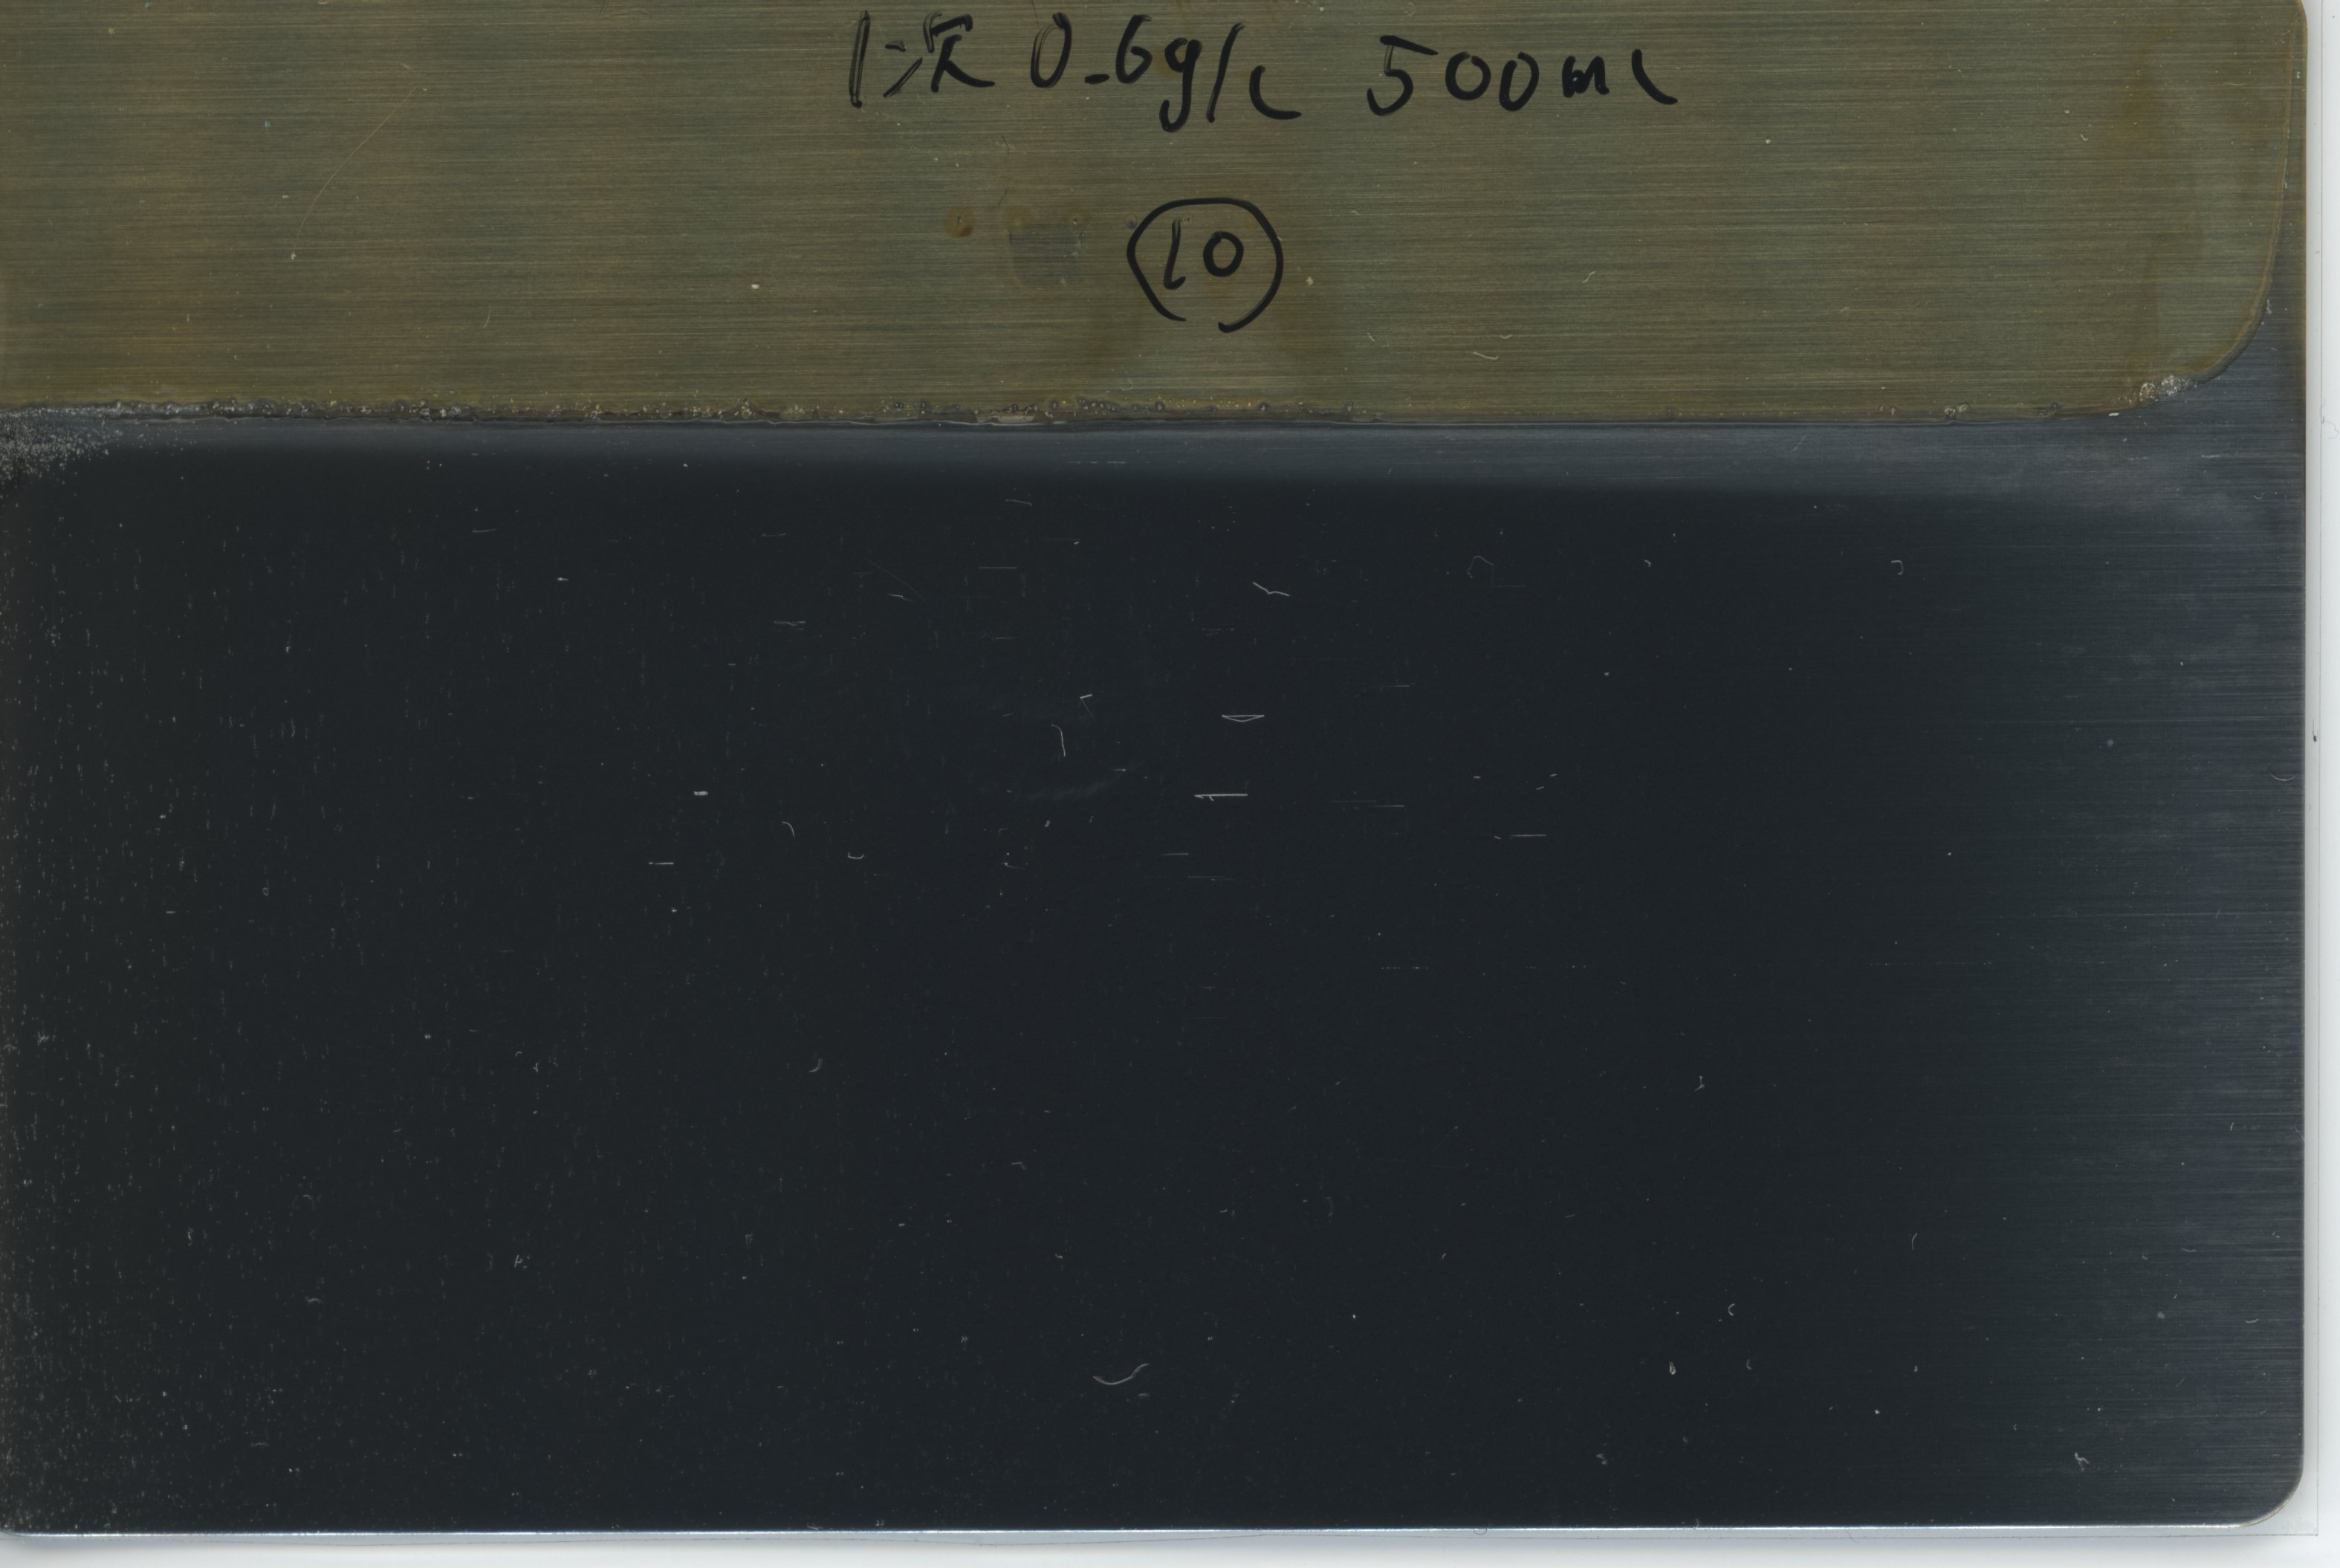 1次 0.6g/L 500ml
10